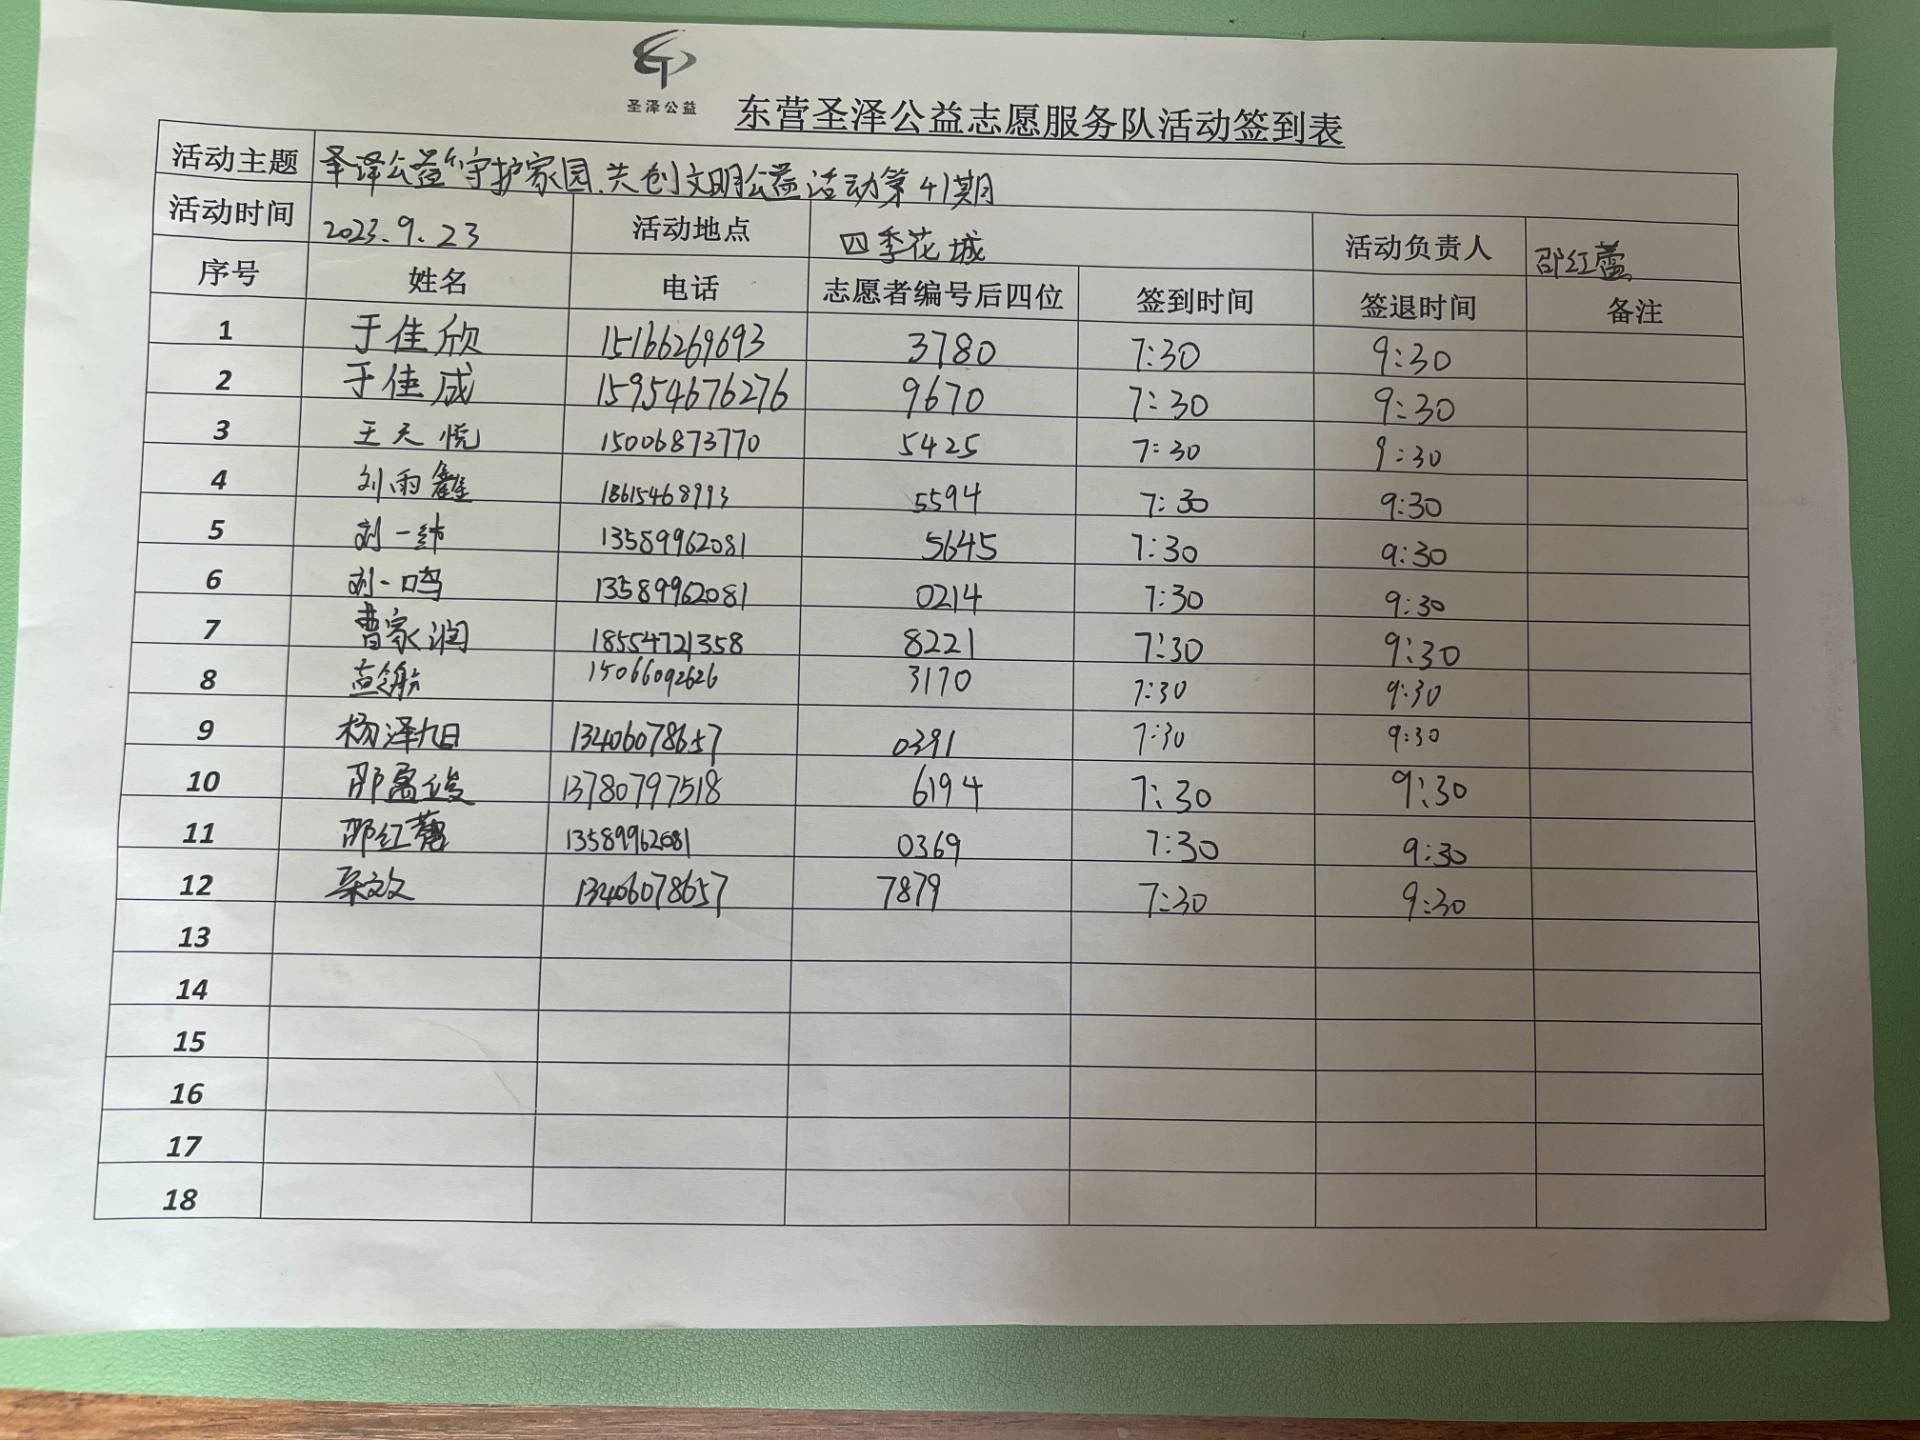 圣泽公益
东营圣泽公益志愿服务队活动签到表
活动主题 圣泽公益"守护家园.共创文明公益活动第41期
活动时间 2023.9.23 活动地点 四季花城 活动负责人 邵红蕾
序号 姓名 电话 志愿者编号后四位 签到时间 签退时间 备注
1 于佳欣 15166269693 3780 7:30 9:30
2 于佳成 15954676276 9670 7:30 9:30
3 王天悦 15006873770 5425 7:30 9:30
4 刘雨 18615468993 5594 7:30 9:30
5 刘一纬 13589962081 5645 7:30 9:30
6 刘一鸣 13589962081 0214 7:30 9:30
7 曹家润 18554721358 8221 7:30 9:30
8 15066092626 3170 7:30 9:30
9 杨泽旭 13406078657 0391 7:30 9:30
10 邵 13780797518 6194 7:30 9:30
11 邵红蕾 13589962081 0369 7:30 9:30
12 13406078657 7879 7:30 9:30
13
14
15
16
17
18